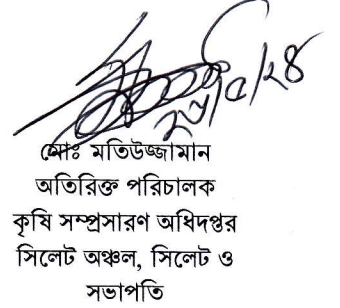 ২৮/৫/২৪
মোঃ মতিউজ্জামান
অতিরিক্ত পরিচালক
কৃষি সম্প্রসারণ অধিদপ্তর
সিলেট অঞ্চল, সিলেট ও
সভাপতি